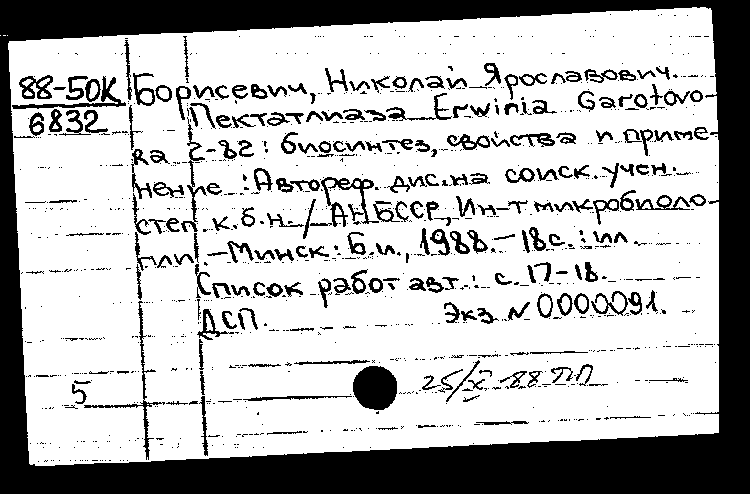 88-50К Борисевич, Николай Ярославович.
6832 Пектатлиаза Erwinia Carotovo-
ra 2-82: биосинтез, свойства и приме-
нение : Автореф. дис. на соиск. учен.
степ. к.б.н. / АН БССР, Ин-т микробиоло-
гии. – Минск : Б.и., 1988. – 18с. : ил.
Список работ авт.: с. 17-18.
ДСП. Экз N 0000091.
5 25/X-88